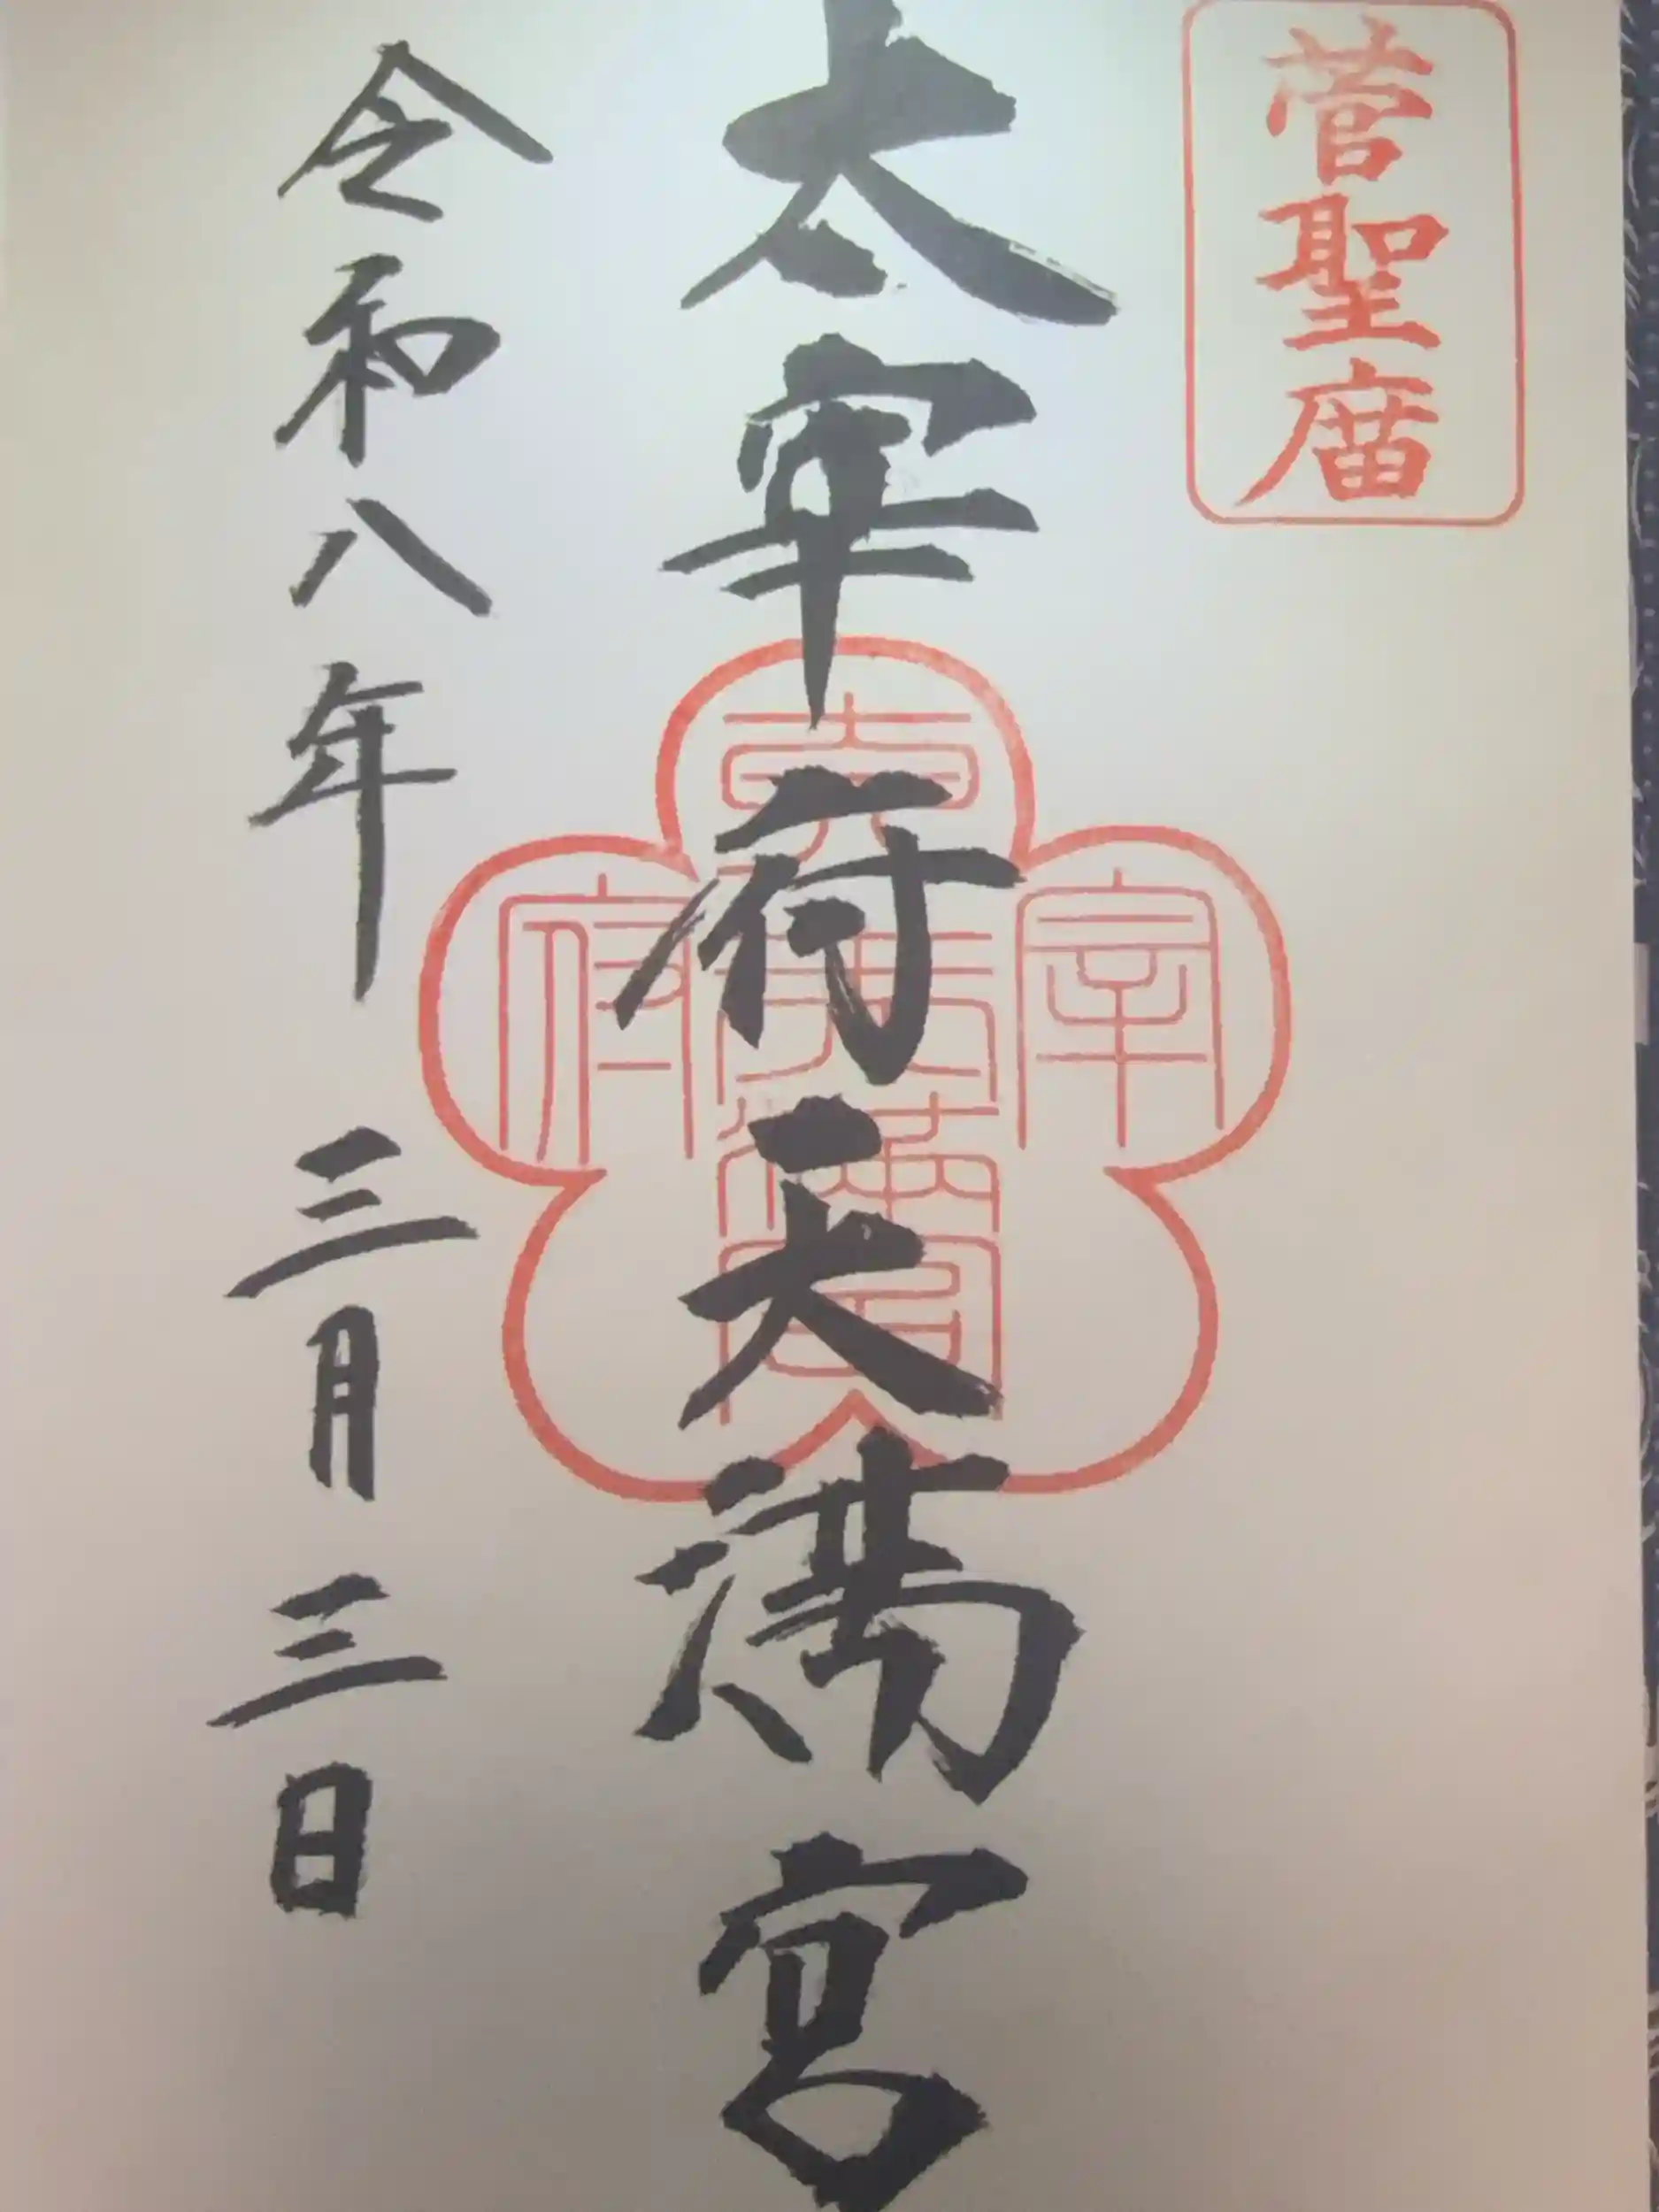 菅聖庿
太宰府天満宮
令和八年 三月三日
太宰府天満宮